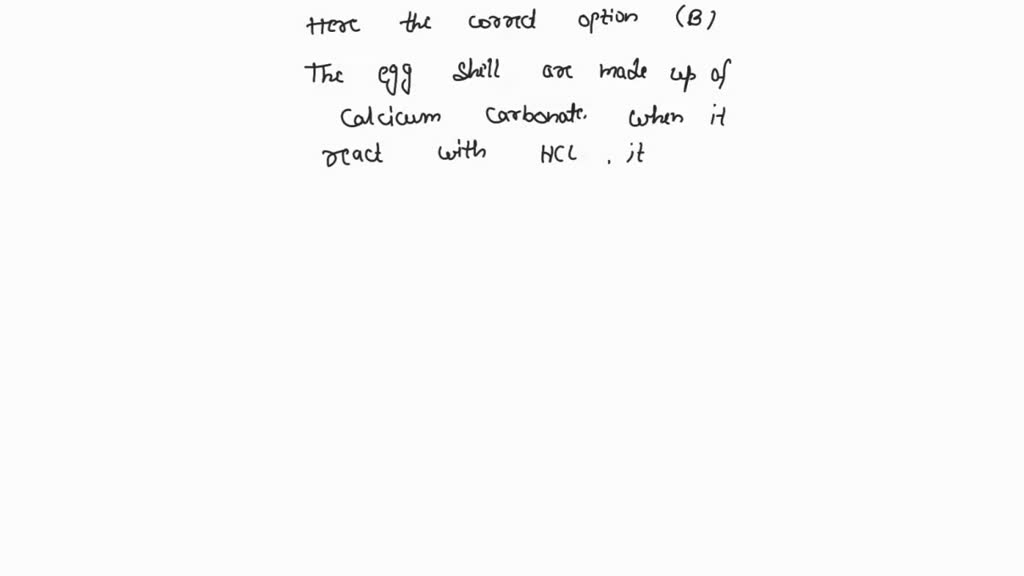 Here the correct option (B)
The egg shell are made up of
Calcium Carbonate. when it
react with HCL , it